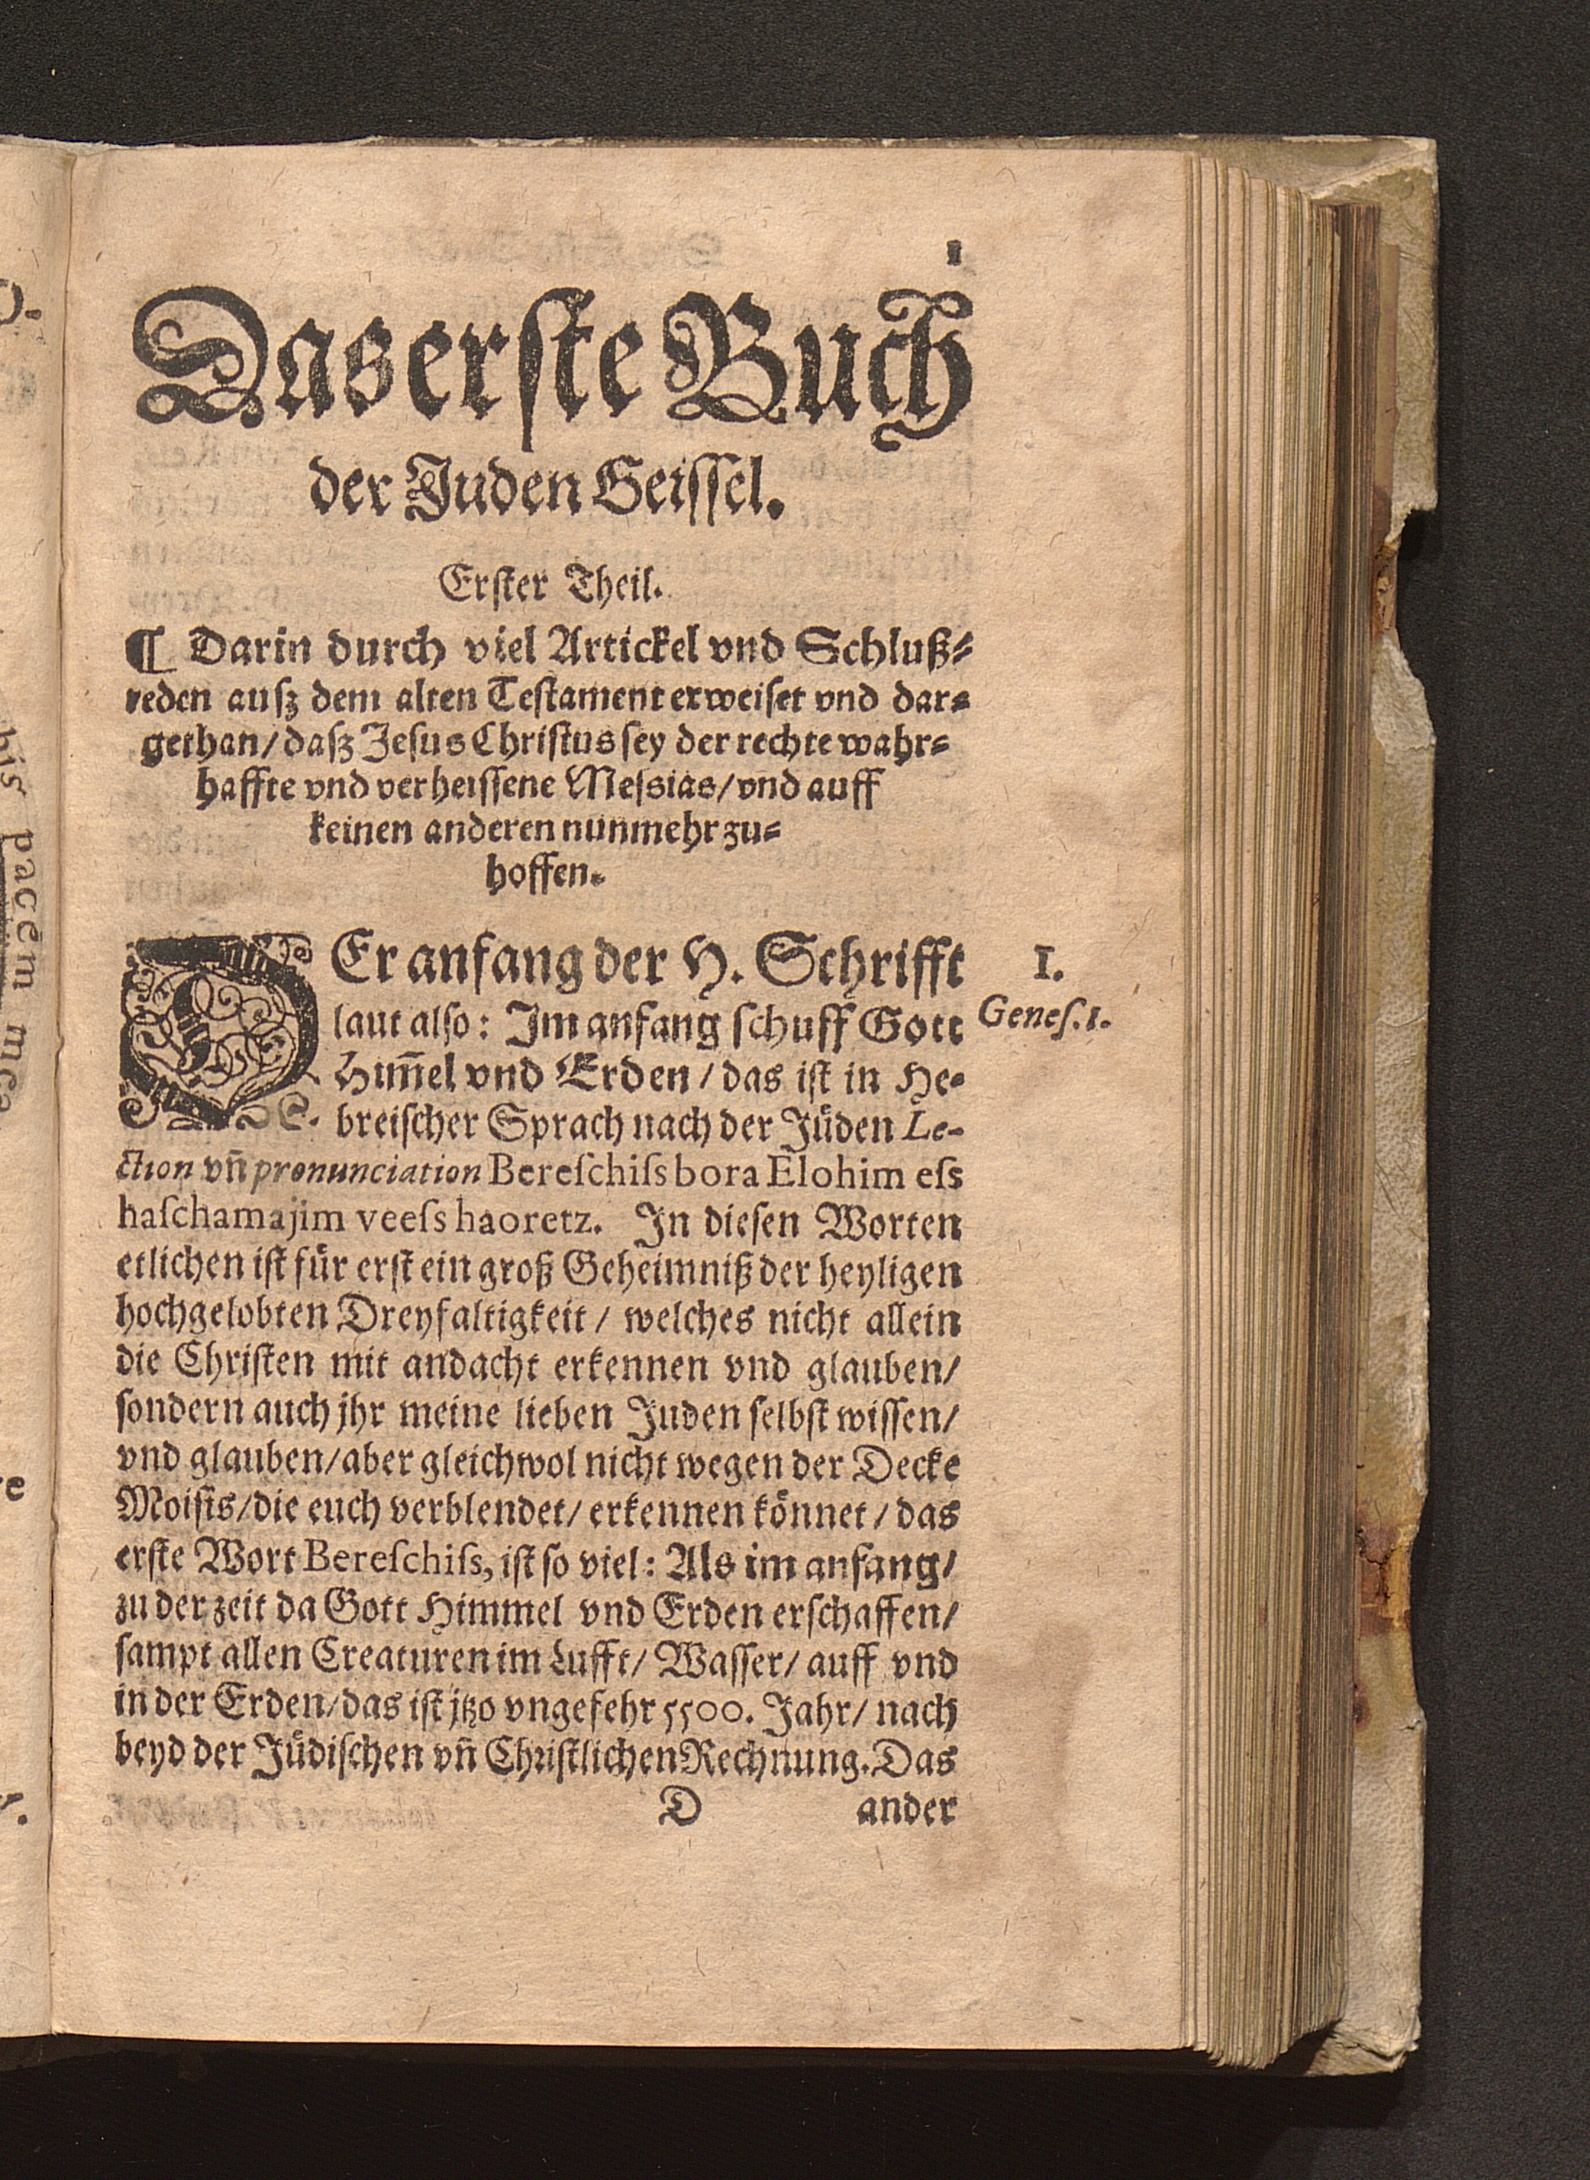 1
Das erste Buch
der Juden Geissel.
Erster Theil.
¶ Darin durch viel Artickel vnd Schluß⸗
reden ausz dem alten Testament erweiset vnd dar⸗
gethan/ dasz Jesus Christus sey der rechte wahr⸗
haffte vnd verheissene Messias/ vnd auff
keinen anderen nunmehr zu⸗
hoffen.
DEr anfang der H. Schrifft
I.
laut also: Im anfang schuff Gott
Genes. 1.
Him̃el vnd Erden / das ist in He⸗
breischer Sprach nach der Jüden Le-
ction vñ pronunciation Bereschiss bora Elohim ess
haschamajim veess haoretz. In diesen Worten
etlichen ist für erst ein groß Geheimniß der heyligen
hochgelobten Dreyfaltigkeit / welches nicht allein
die Christen mit andacht erkennen vnd glauben/
sondern auch jhr meine lieben Juden selbst wissen/
vnd glauben/ aber gleichwol nicht wegen der Decke
Moisis/ die euch verblendet/ erkennen könnet / das
erste Wort Bereschiss, ist so viel: Als im anfang/
zu der zeit da Gott Himmel vnd Erden erschaffen/
sampt allen Creaturen im Lufft/ Wasser/ auff vnd
in der Erden/ das ist jtzo vngefehr 5500. Jahr/ nach
beyd der Jüdischen vñ Christlichen Rechnung. Das
D ander